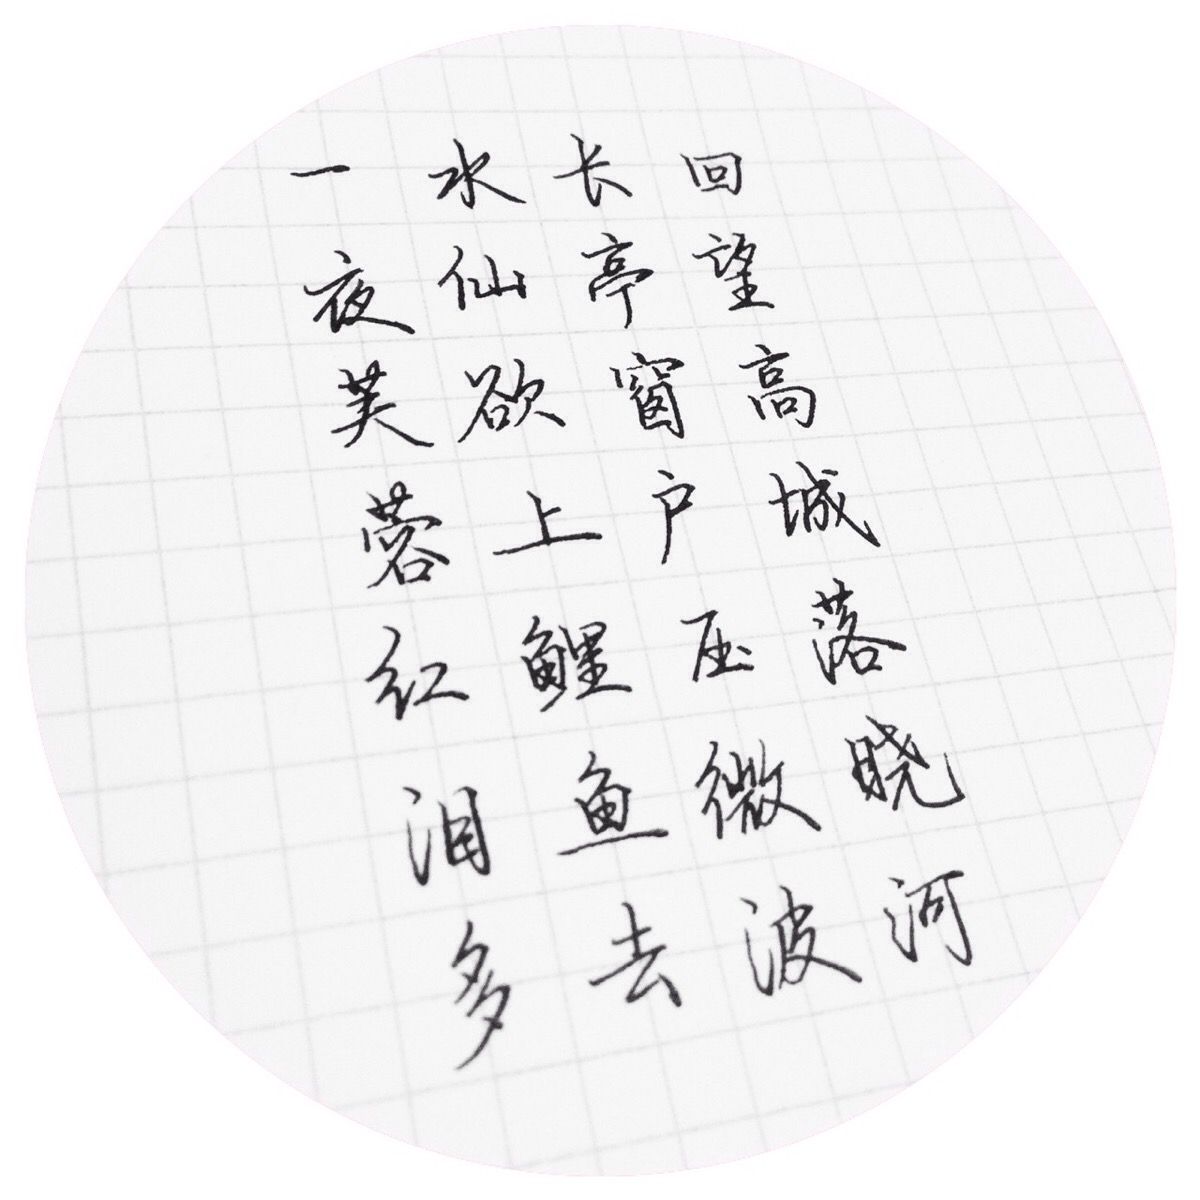 回望高城落晓河
长亭窗户压微波
水仙欲上鲤鱼去
一夜芙蓉红泪多